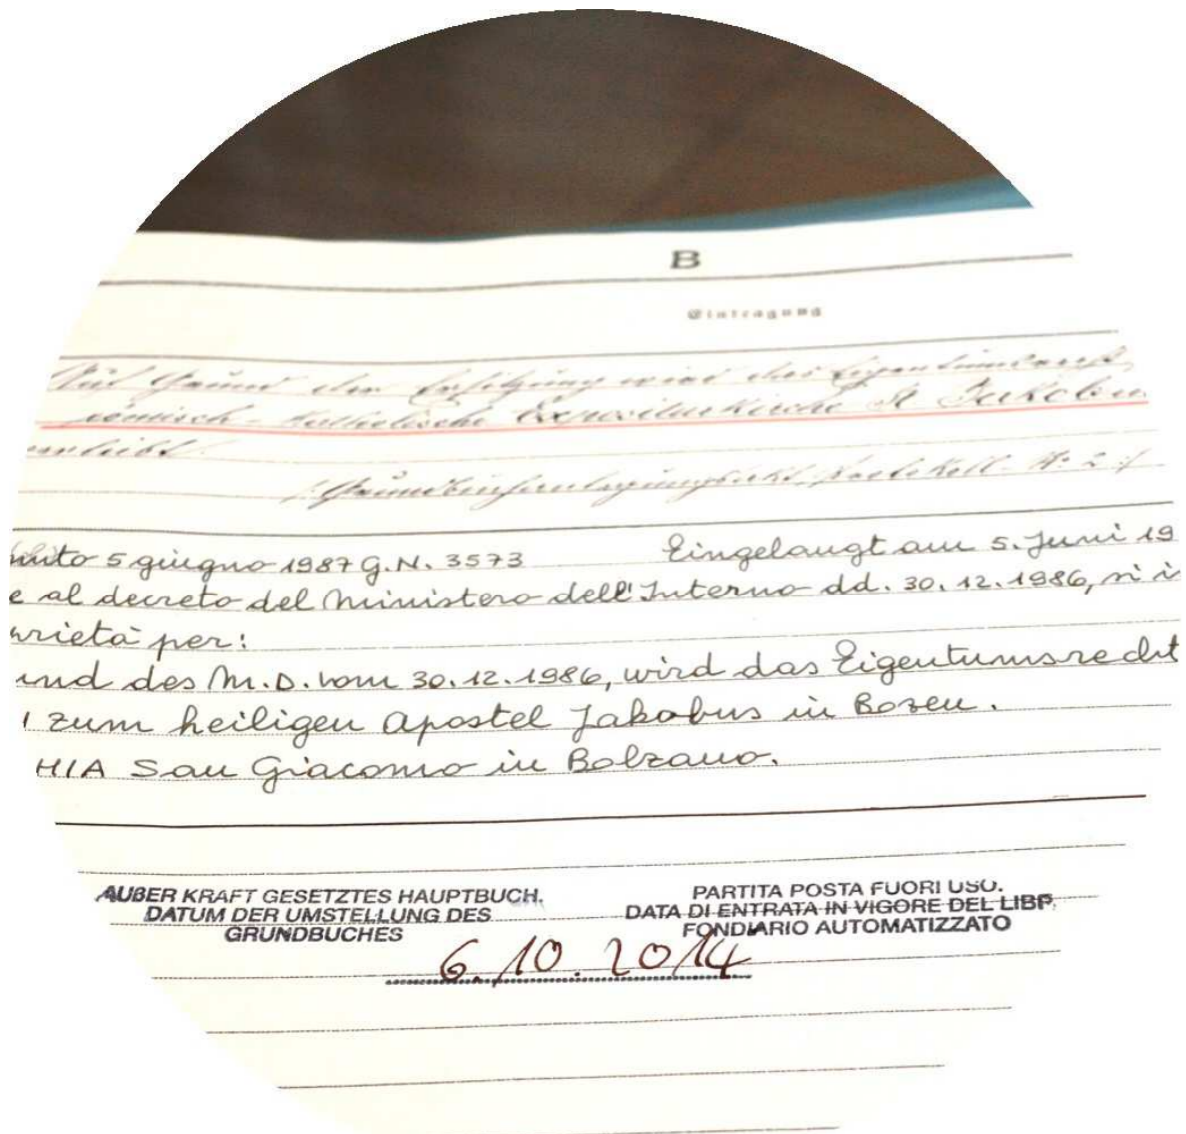 B
Eintragung
Auf Grund der Ersitzung wird das Eigentumsrecht
römisch-katholische Expositurkirche St Jakob in
einverleibt.
5 giugno 1987 G.N. 3573 Eingelangt am 5. Juni 19
e al decreto del Ministero dell'Interno dd. 30.12.1986, si i
rietà per:
und des M.D. vom 30.12.1986, wird das Eigentumsrecht
zum heiligen Apostel Jakobus in Bozen.
HIA San Giacomo in Bolzano.
AUßER KRAFT GESETZTES HAUPTBUCH. PARTITA POSTA FUORI USO.
DATUM DER UMSTELLUNG DES DATA DI ENTRATA IN VIGORE DEL LIBR.
GRUNDBUCHES FONDIARIO AUTOMATIZZATO
6.10.2014